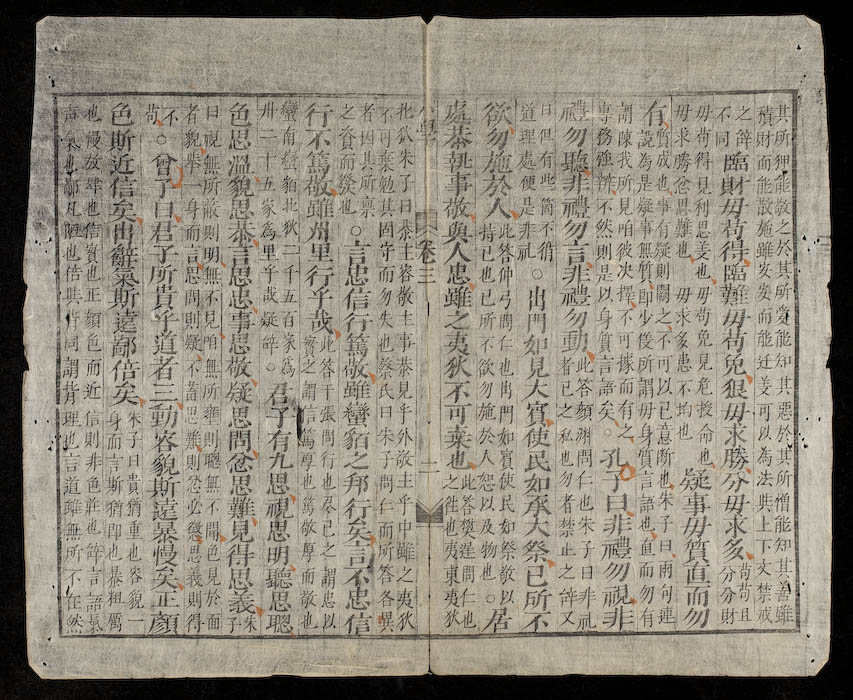 其所狎能敬之於其所愛能知其惡於其所憎能知其善雖
積財而能散施雖安安而能迁義可以為法與上下文禁戒
之辞
不同
臨財毋苟得臨難毋苟免狠毋求勝分毋求多
苟苟且
分分財
毋苟得見利思義也毋苟免見危授命也
毋求勝忿思難也毋求多患不均也
疑事毋質直而勿
有
質成也事有疑則闕之不可以已意断也朱子曰兩句連
說為是疑事無質即少儀所謂毋身質言語也直而勿有
謂陳我所見咱彼决擇不可據而有之
專務強辨不然則是以身質言語矣
○孔子曰非禮勿視非
禮勿聽非禮勿言非禮勿動
此答顔渊問仁也朱子曰非礼
者已之私也勿者禁止之辞又
曰但有些箇不循
道理處便是非礼
○出門如見大賓使民如承大祭已所不
欲勿施於人
此答仲弓問仁也出門如賓使民如祭敬以
持已也已所不欲勿施於人恕以及物也
○居
處恭執事敬與人忠雖之夷狄不可棄也
此答樊遲問仁也
之往也夷東夷狄
小學
卷三
二
北狄朱子曰恭主容敬主事恭見乎外敬主乎中雖之夷狄
不可棄勉其固守而勿失也蔡氏曰朱子問仁而所答各異
者因其所禀
之資而發也
○言忠信行篤敬雖蠻貊之邦行矣言不忠信
行不篤敬雖州里行乎哉
此答子張問行也尽已之謂忠以
實之謂信篤厚也篤敬厚而敬也
蠻南蠻貊北狄二千五百家為
州二十五家為里乎哉疑辞
○君子有九思視思明聽思聰
色思溫貌思恭言思忠事思敬疑思問忿思難見得思義
朱
子
曰視無所蔽則明無不見听無所壅則聰無不聞色見於面
者貌舉一身而言思問則疑不畜思難則忿必懲思義則得
不
苟
○曾子曰君子所貴乎道者三動容貌斯遠暴慢矣正顏
色斯近信矣出辭氣斯遠鄙倍矣
朱子曰貴猶重也容貌一
身而言斯猶即也暴粗厲
也慢放肆也信實也正顔色而近信則非色莊也辞言語氣
声氣也鄙凡陋也倍與背同謂背理也言道雖無所不在然